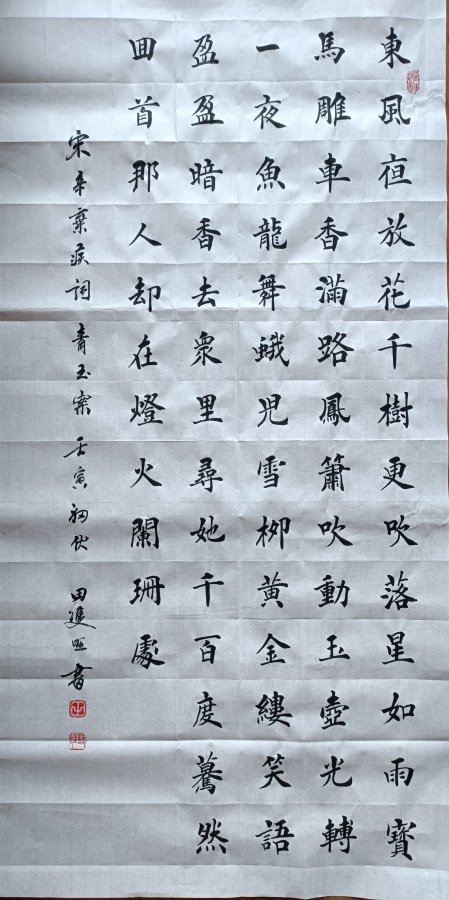 東風亱放花千樹更吹落星如雨寶
馬雕車香滿路鳳簫吹動玉壺光轉
一夜魚龍舞蛾兒雪柳黃金縷笑語
盈盈暗香去衆里尋她千百度驀然
囬首那人却在燈火闌珊處
宋辛棄疾詞青玉案壬寅初伏 田進書